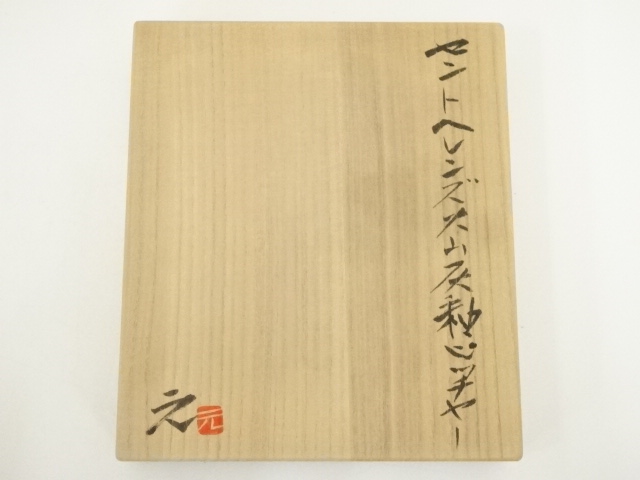 セントヘレンズ火山灰釉ピッチャー
元
元